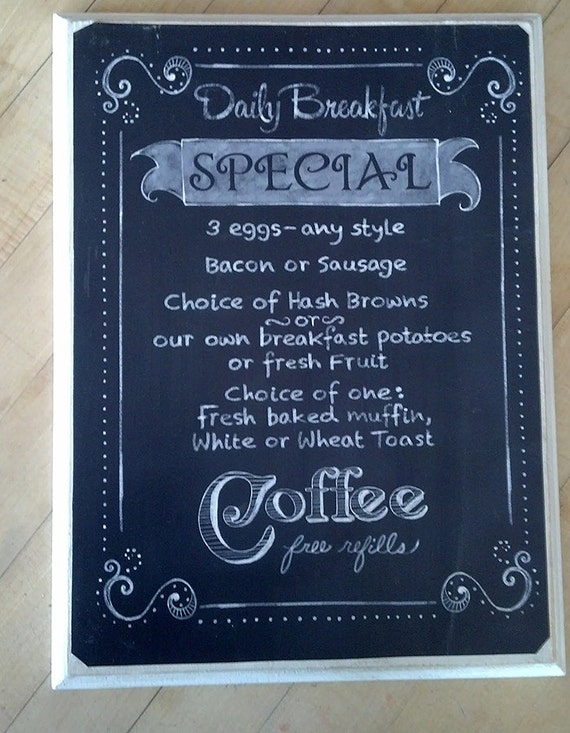 Daily Breakfast
SPECIAL
3 eggs-any style
Bacon or Sausage
Choice of Hash Browns
or
our own breakfast potatoes
or fresh Fruit
Choice of one:
Fresh baked muffin,
White or Wheat Toast
Coffee
free refills